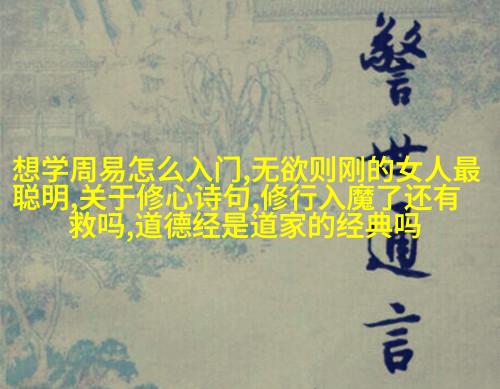 想学周易怎么入门,无欲则刚的女人最
聪明,关于修心诗句,修行入魔了还有
救吗,道德经是道家的经典吗
警世通言